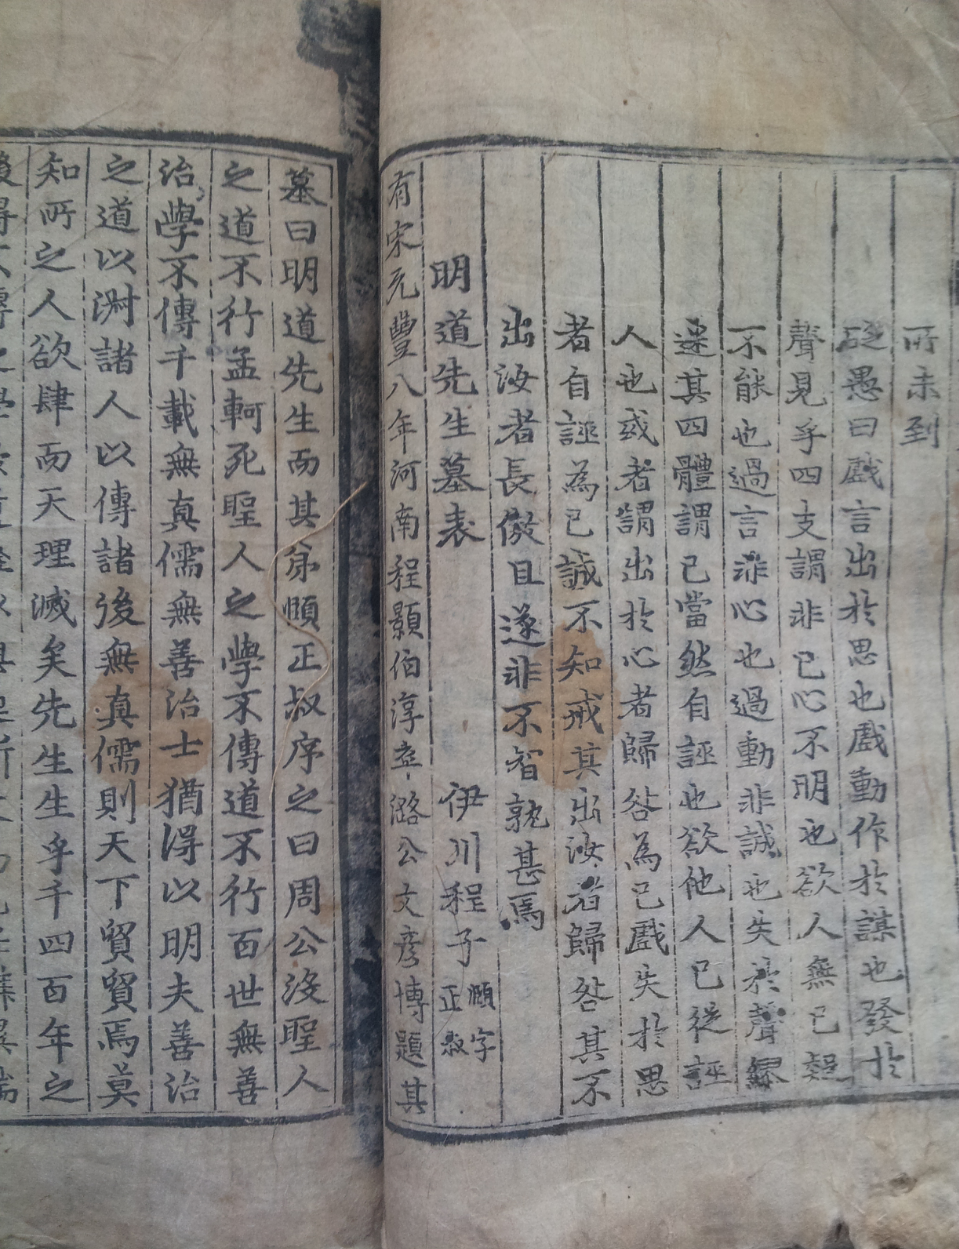 所未到
砭愚曰戲言出於思也戲動作於謀也發於
聲見乎四支謂非己心不明也欲人無己疑
不能也過言非心也過動非誠也失於聲繆
迷其四體謂己當然自誣也欲他人己從誣
人也或者謂出於心者歸咎為己戲失於思
者自誣為己誠不知戒其出汝者歸咎其不
出汝者長傲且遂非不智孰甚焉
明道先生墓表 伊川程子 頤字正叔
有宋元豐八年河南程顥伯淳卒潞公文彦博題其
墓曰明道先生而其弟頤正叔序之曰周公没聖人
之道不行孟軻死聖人之學不傳道不行百世無善
治學不傳千載無真儒無善治士猶得以明夫善治
之道以淑諸人以傳諸後無真儒則天下貿貿焉莫
知所之人欲肆而天理滅矣先生生乎千四百年之